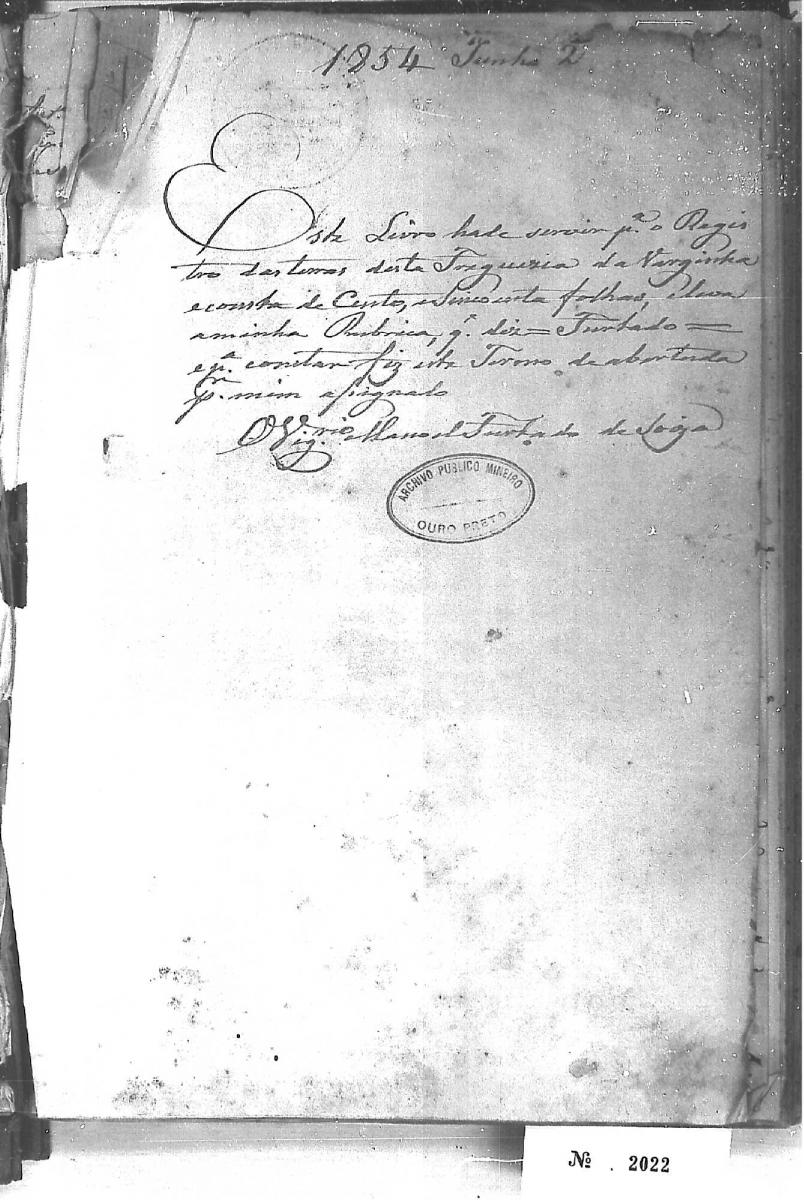 1854 Junho 2
Este Livro hade servir p.ª o Regis
tro das terras desta Freguezia da Varginha
e consta de Cento, e Sincoenta folhas, e leva
a minha Rubrica, q.ᵉ diz = Furtado =
e p.ª constar fiz este Termo de abertuda
p.ʳ mim assignado
O Vig.ʳⁱᵒ Manoel Furtado de Soiza
ARCHIVO PUBLICO MINEIRO
OURO PRETO
№ . 2022